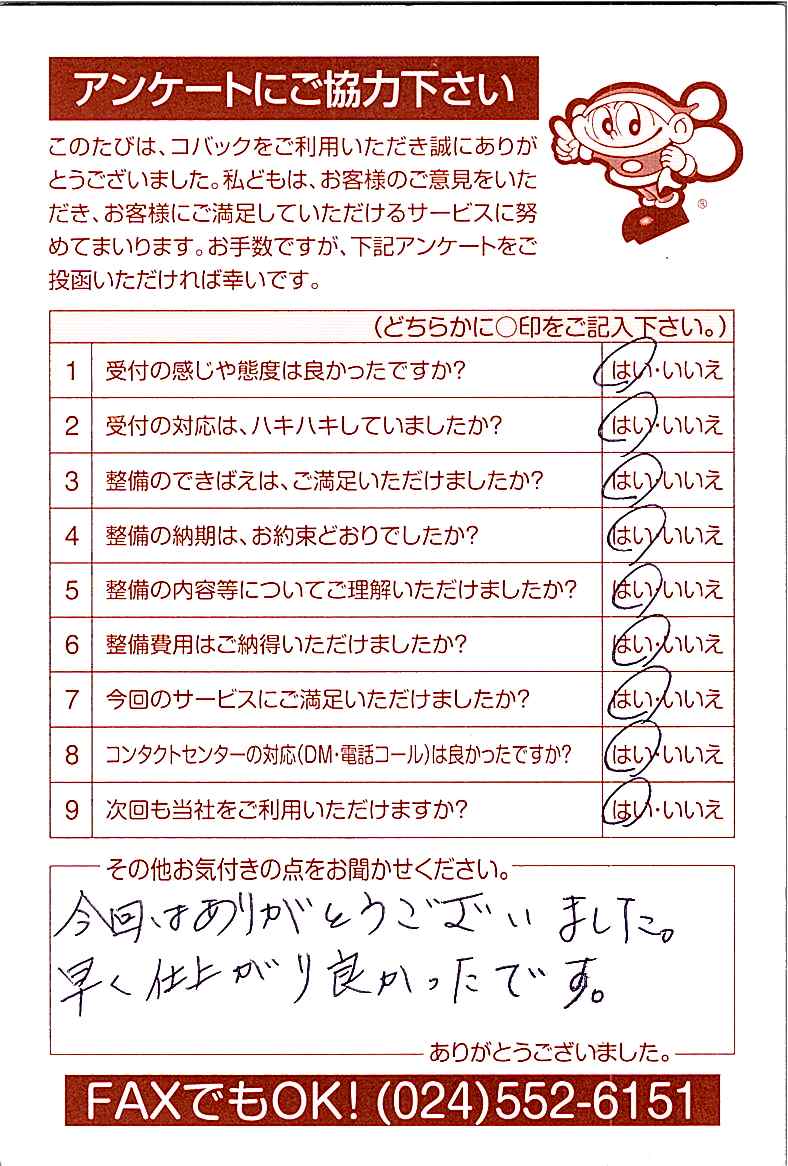 アンケートにご協力下さい
このたびは、コバックをご利用いただき誠にありが
とうございました。私どもは、お客様のご意見をいた
だき、お客様にご満足していただけるサービスに努
めてまいります。お手数ですが、下記アンケートをご
投函いただければ幸いです。
(どちらかに○印をご記入下さい。)
1 受付の感じや態度は良かったですか? はい・いいえ
2 受付の対応は、ハキハキしていましたか? はい・いいえ
3 整備のできばえは、ご満足いただけましたか? はい・いいえ
4 整備の納期は、お約束どおりでしたか? はい・いいえ
5 整備の内容等についてご理解いただけましたか? はい・いいえ
6 整備費用はご納得いただけましたか? はい・いいえ
7 今回のサービスにご満足いただけましたか? はい・いいえ
8 コンタクトセンターの対応(DM・電話コール)は良かったですか? はい・いいえ
9 次回も当社をご利用いただけますか? はい・いいえ
その他お気付きの点をお聞かせください。
今回はありがとうございました。
早く仕上がり良かったです。
ありがとうございました。
FAXでもOK! (024)552-6151